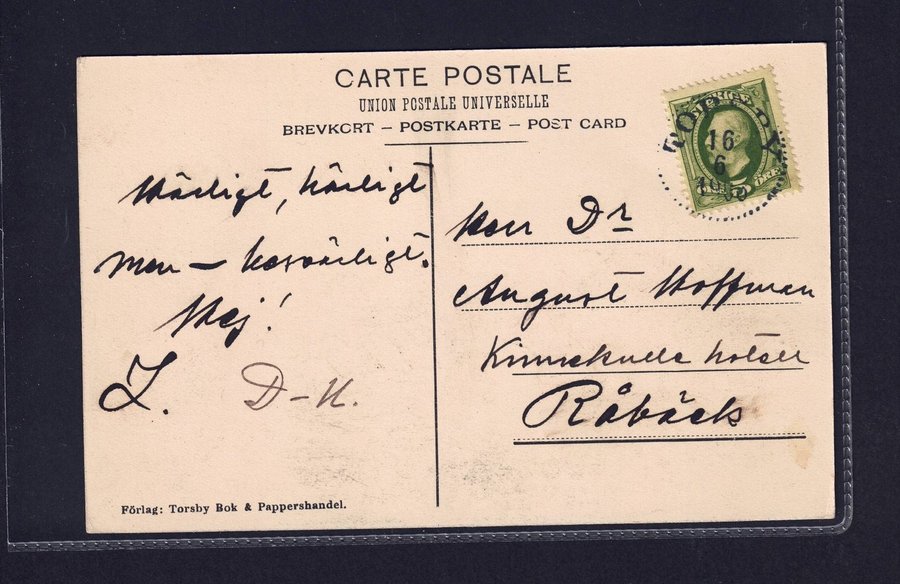 CARTE POSTALE
UNION POSTALE UNIVERSELLE
BREVKORT – POSTKARTE – POST CARD
SVERIGE
16
6
5 ÖRE
Härligt, härligt
men – besvärligt.
Hej!
D-H.
Herr Dr
August Hoffman
Kinnekulle hotell
Råbäck
Förlag: Torsby Bok & Pappershandel.